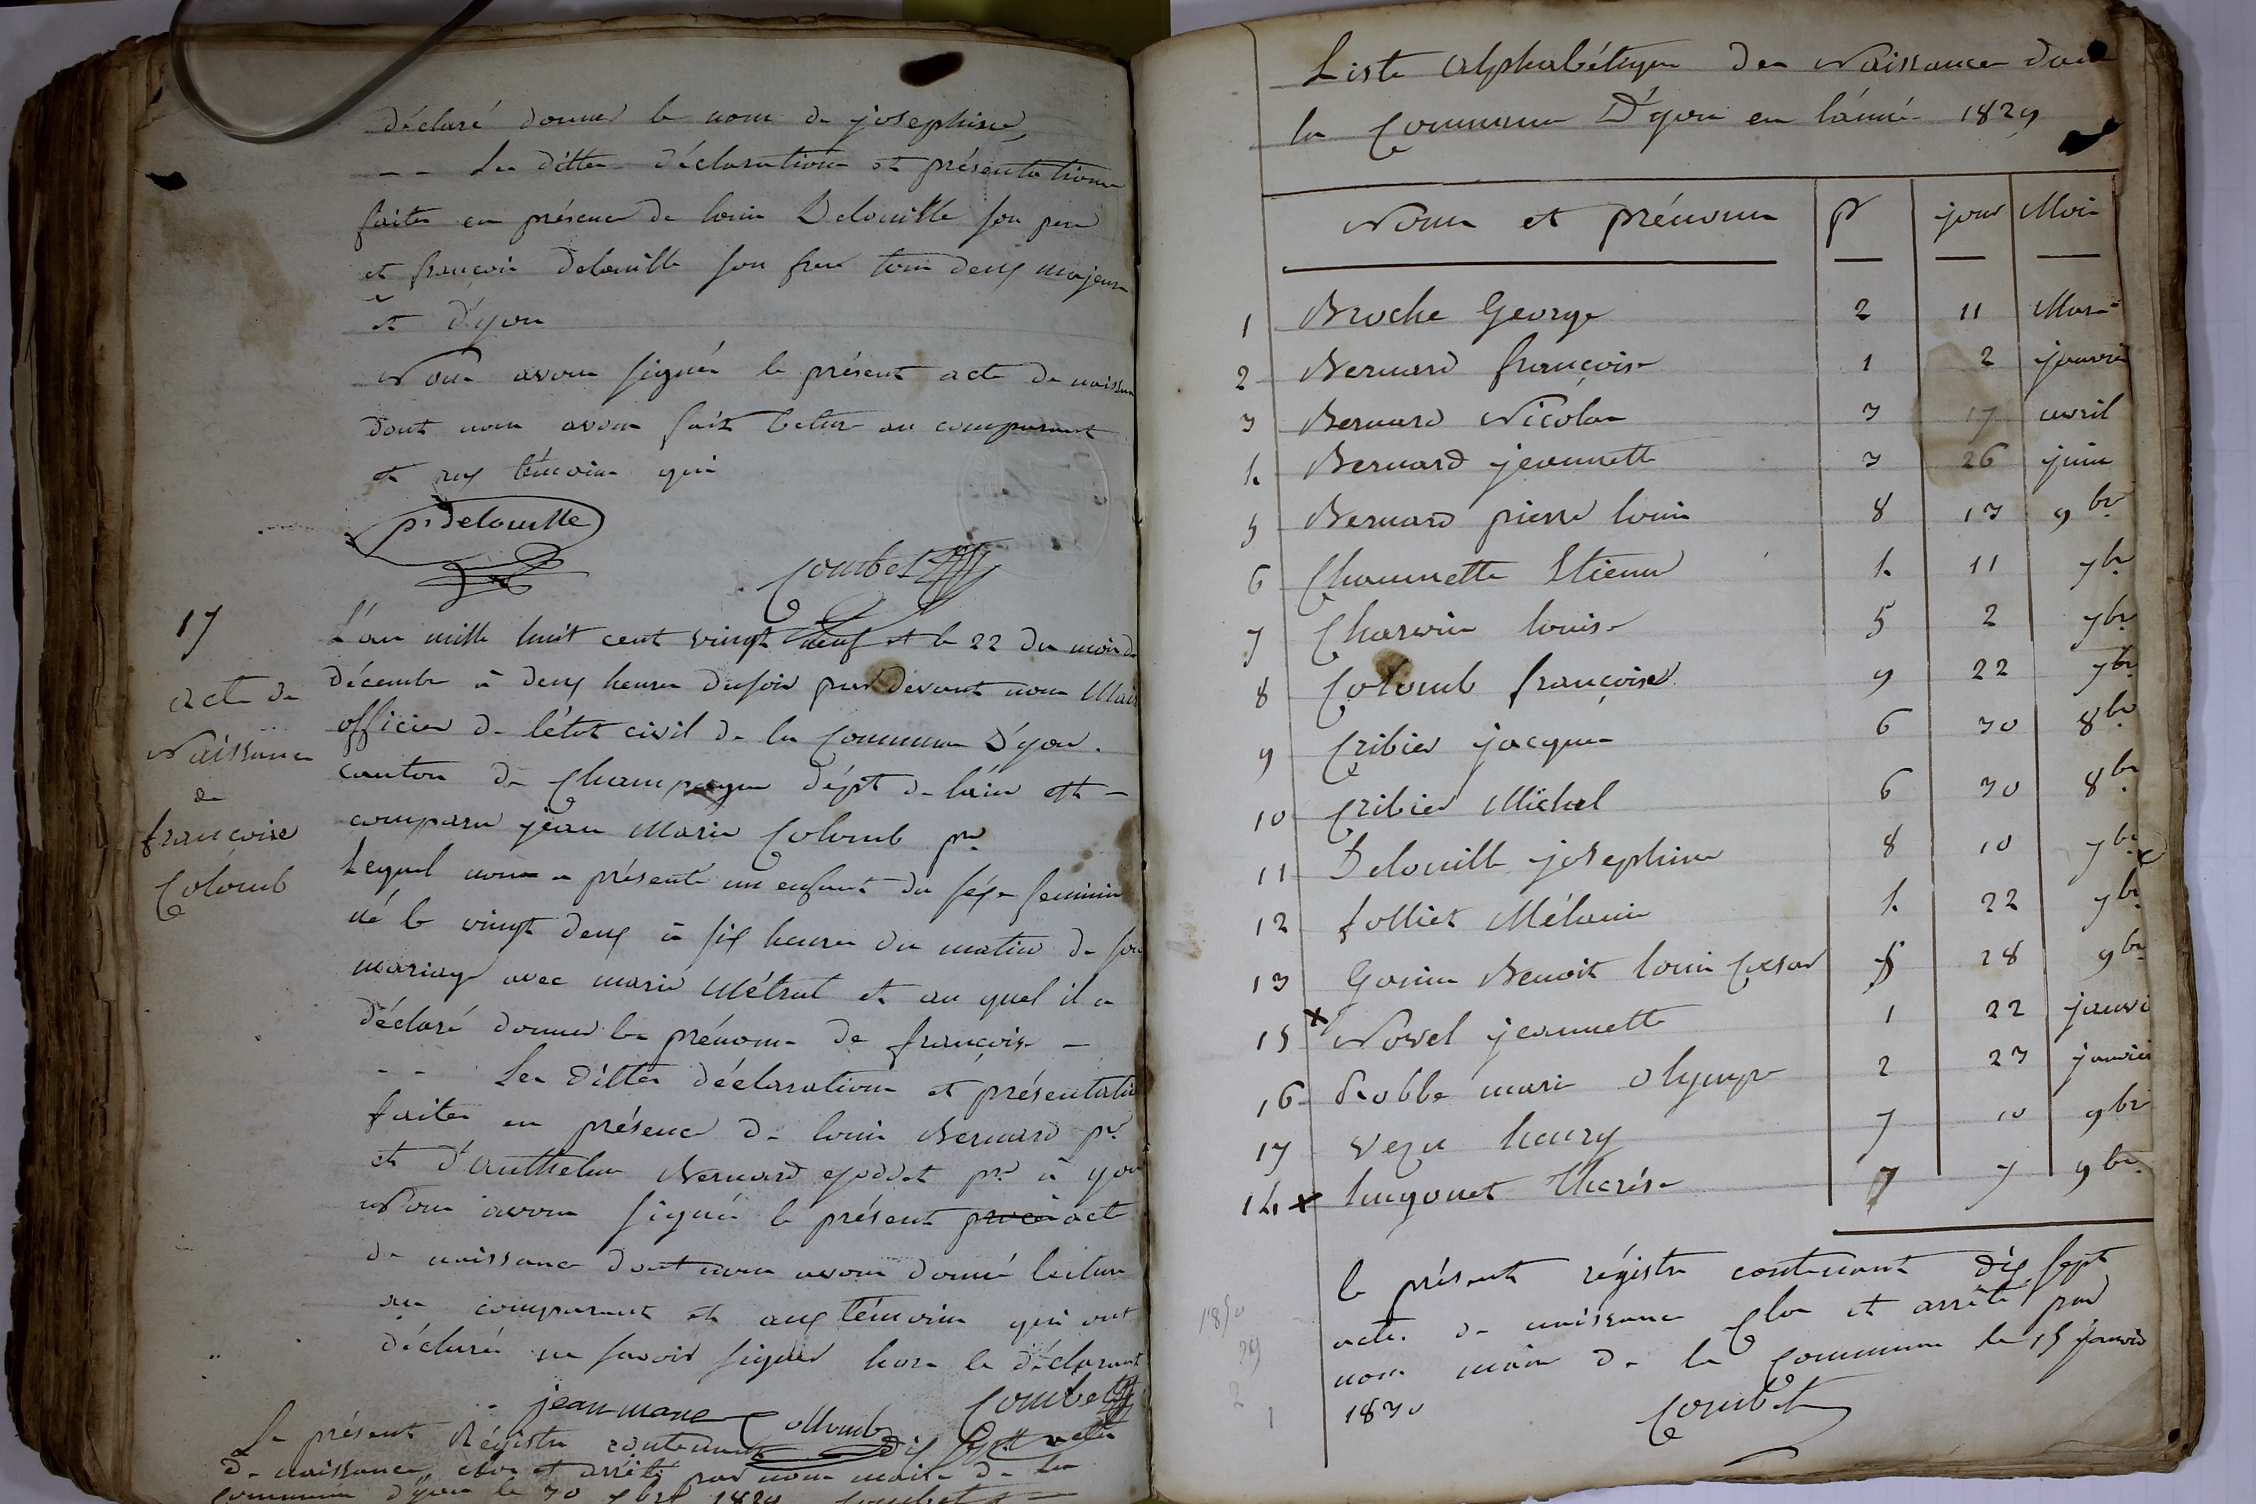 déclaré donner le nom de josephine,
-- Les dittes déclarations et présentations
faites en présence de louis Delouille son pere
et françois delouille son frere tous deux majeurs
et d'yon
Nous avons signés le présent acte de naissan
dont nous avons fait lecture au comparant
et aux témoins qui
pr delouille
Combet
17
acte de
Naissance
de
françoise
Colomb
L'an mille huit cent vingt neuf et le 22 du mois de
décembre à deux heures dusoir par devant nous Maire
officier de l'état civil de la Commune D'yon.
canton de Champagne dépt de l'ain est -
comparu jean Marie Colomb pre
Lequel nous a présenté un enfant du sexe feminin
né le vingt deux à six heures du matin de son
mariage avec marie Métrat et au quel il a
déclaré donner les prénoms de françoise -
-- Les dittes déclarations et présentations
faites en présence de louis Bernard pre
et d'anthelme Bernard goddet pre à yon
Nous avons signés le présent procès acte
de naissance dont nous avons donné lecture
au comparant et aux témoins qui ont
déclarés ne savoir signer hors le déclarant
jean marie Collomb Combet
Le présent Régistre contenant dix sept actes
de naissances clos et arrêté par nous maire de la
commune d'yon le 30 xbre 1829 Combet
Liste alphabétique des Naissances dans
la Commune D'yon en l'année 1829
Noms et prénoms jour Mois
1 Broche George 2 11 Mars
2 Bernard françoise 1 2 janvier
3 Bernard Nicolas 3 17 avril
4 Bernard jeannette 3 26 juin
5 Bernard pierre louis 8 13 9bre
6 Chaumette Etienne 4 11 7bre
7 Charvin louise 5 2 7bre
8 Colomb françoise 9 22 xbre
9 Cribier jacques 6 30 8bre
10 Cribier Michel 6 30 8bre
11 Delouille josephine 8 10 xbre
12 folliet Mélanie 4 22 7bre
13 Gonin Benoit louis Cesar 5 28 9bre
15 x Novel jeannette 1 22 janvier
16 Robbe marie olympe 2 23 janvier
17 Vezu henry 7 10 9bre
14 x hugonet thérése 7 7 9bre
le présent régistre contenant dix sept
actes de naissance clos et arrêté par
nous maire de la commune le 15 janvier
1830
Combet
1830
29
2
1